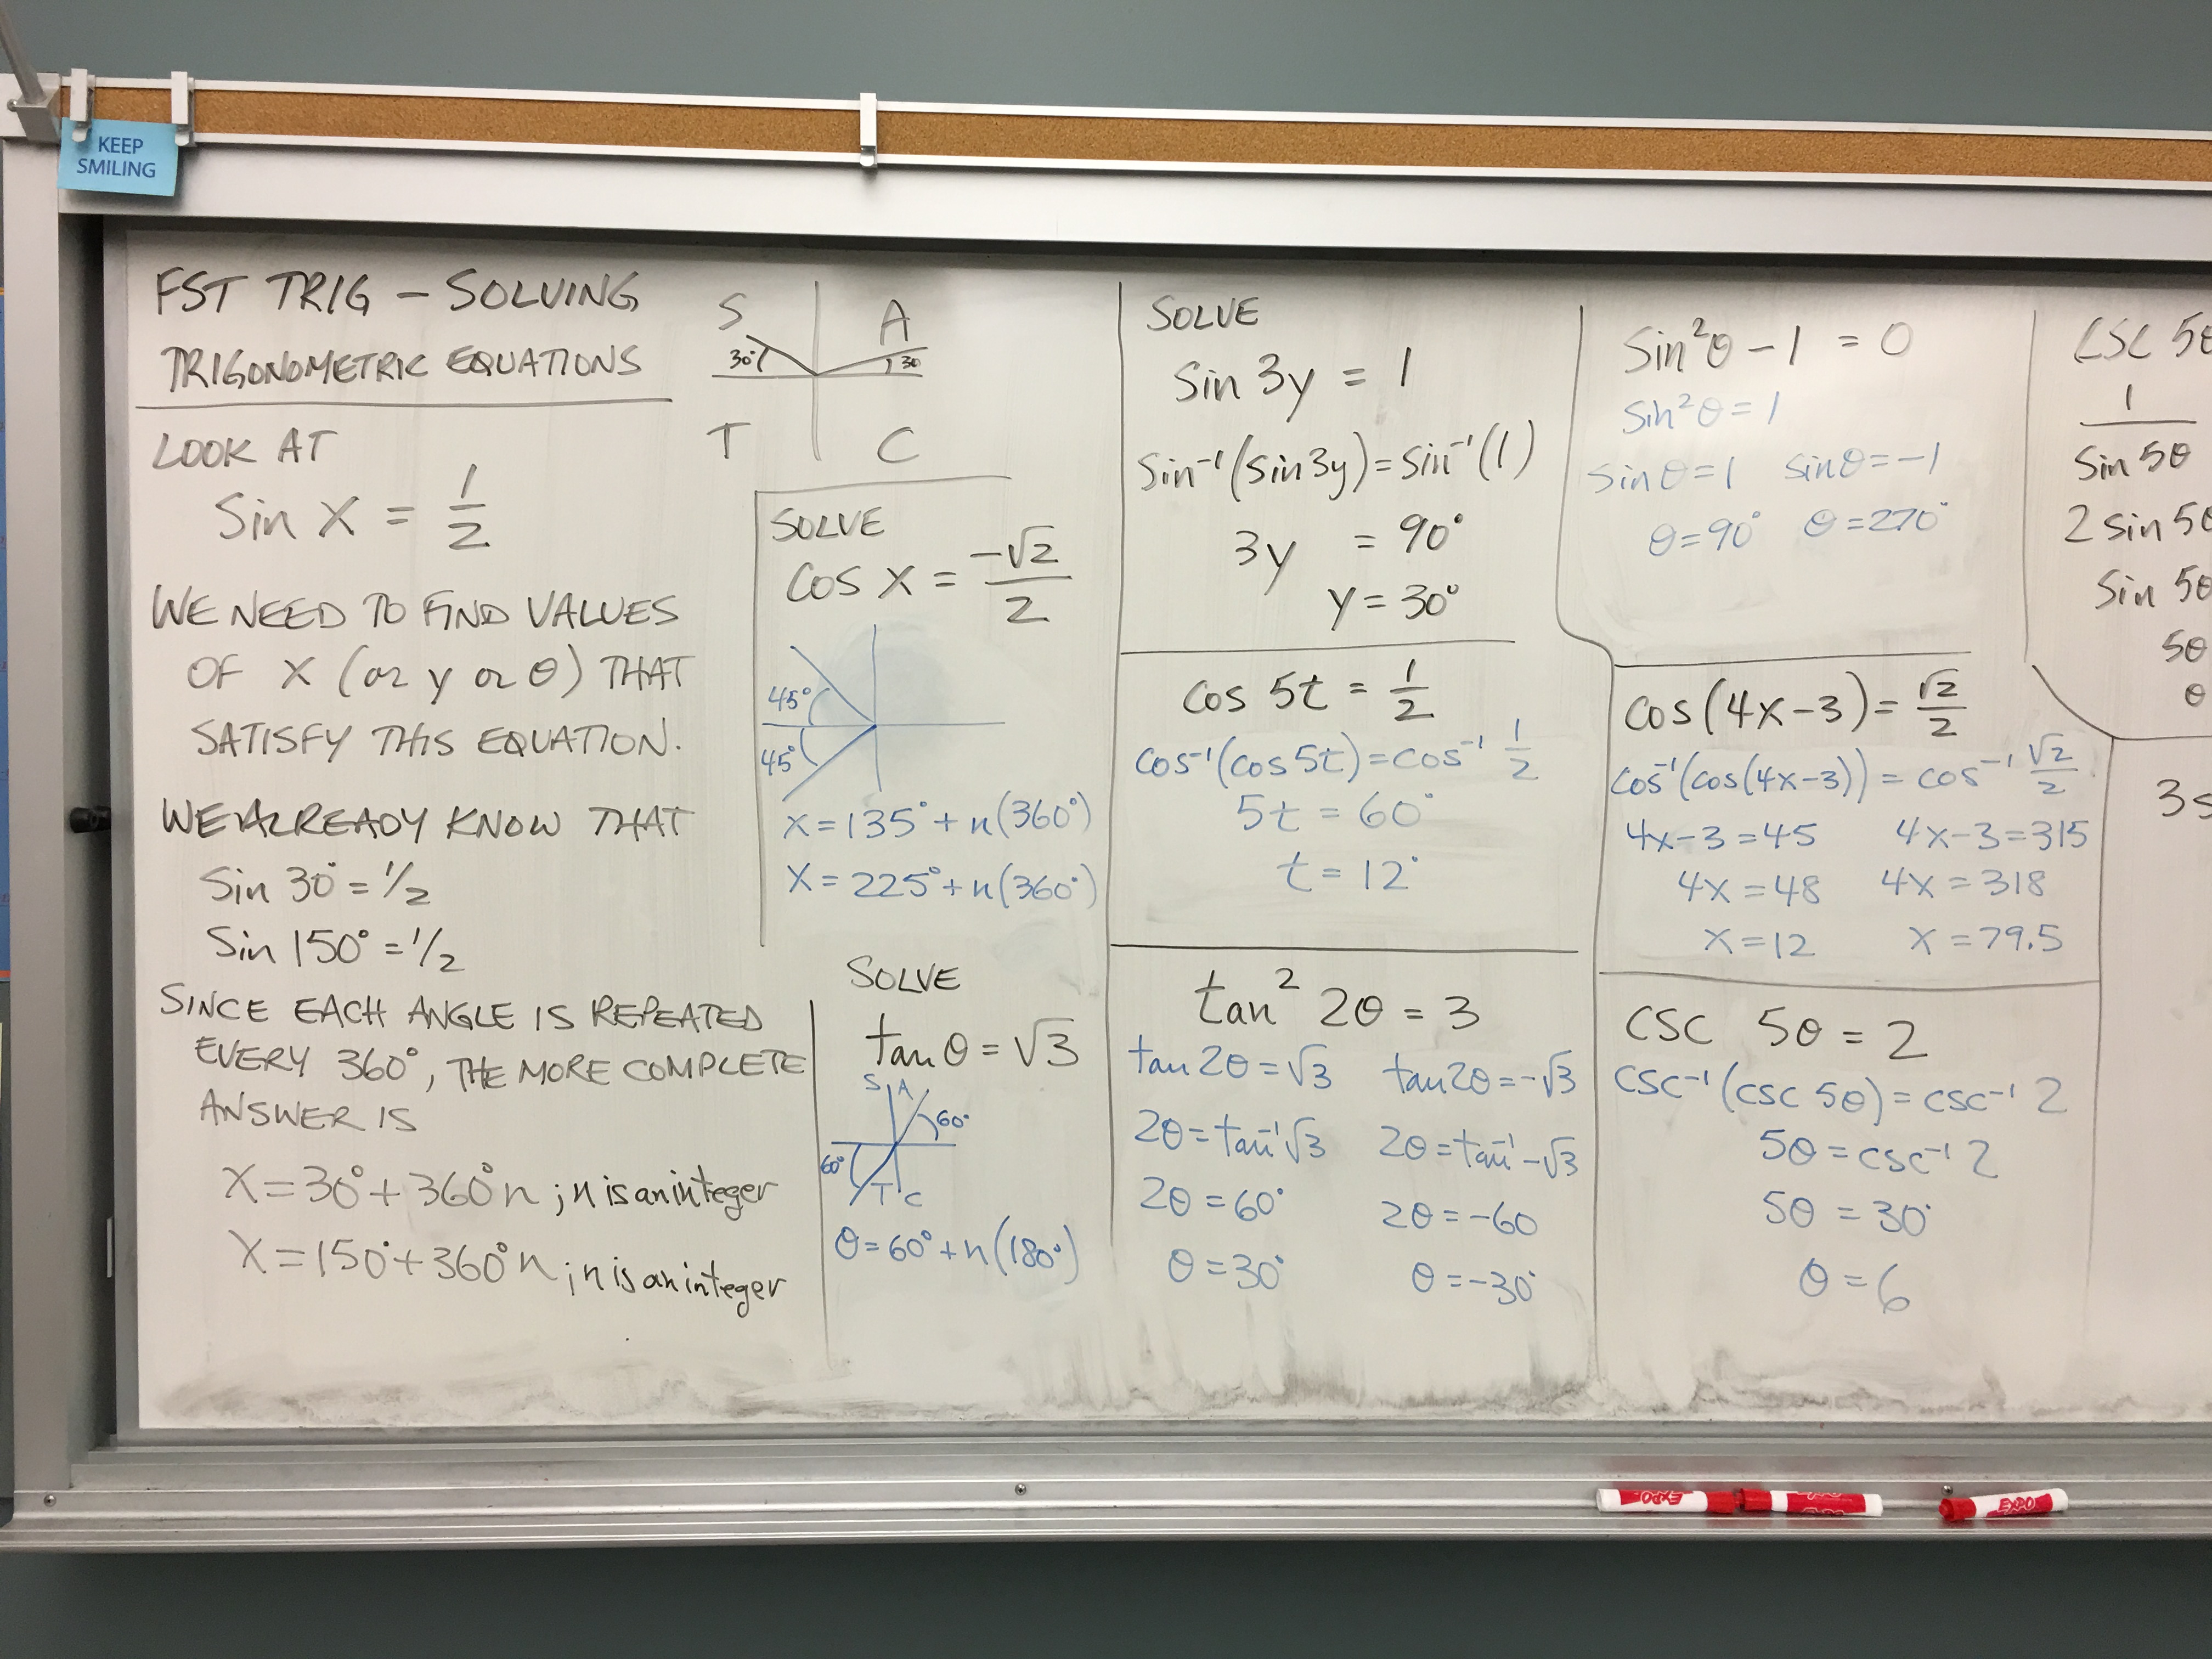 KEEP
SMILING
FST TRIG – SOLVING
TRIGONOMETRIC EQUATIONS
LOOK AT
Sin X = 1/2
WE NEED TO FIND VALUES
OF X (or y or θ) THAT
SATISFY THIS EQUATION.
WE ALREADY KNOW THAT
Sin 30° = 1/2
Sin 150° = 1/2
SINCE EACH ANGLE IS REPEATED
EVERY 360°, THE MORE COMPLETE
ANSWER IS
X = 30° + 360° n ; n is an integer
X = 150° + 360° n ; n is an integer
S A
30° 30
T C
SOLVE
cos x = -√2/2
45°
45°
x = 135° + n(360°)
x = 225° + n(360°)
SOLVE
tan θ = √3
S A
60°
60°
T C
θ = 60° + n(180°)
SOLVE
sin 3y = 1
sin⁻¹(sin 3y) = sin⁻¹(1)
3y = 90°
y = 30°
cos 5t = 1/2
cos⁻¹(cos 5t) = cos⁻¹ 1/2
5t = 60°
t = 12°
tan² 2θ = 3
tan 2θ = √3 tan 2θ = -√3
2θ = tan⁻¹ √3 2θ = tan⁻¹ -√3
2θ = 60° 2θ = -60
θ = 30° θ = -30°
Sin²θ – 1 = 0
Sin²θ = 1
sin θ = 1 sin θ = -1
θ = 90° θ = 270°
cos(4x-3) = √2/2
cos⁻¹(cos(4x-3)) = cos⁻¹ √2/2
4x-3 = 45 4x-3 = 315
4x = 48 4x = 318
x = 12 x = 79.5
CSC 5θ = 2
csc⁻¹(csc 5θ) = csc⁻¹ 2
5θ = csc⁻¹ 2
5θ = 30°
θ = 6
CSC 5θ
1
sin 5θ
2 sin 5θ
Sin 5θ
5θ
θ
3s
EXPO
EXPO
EXPO